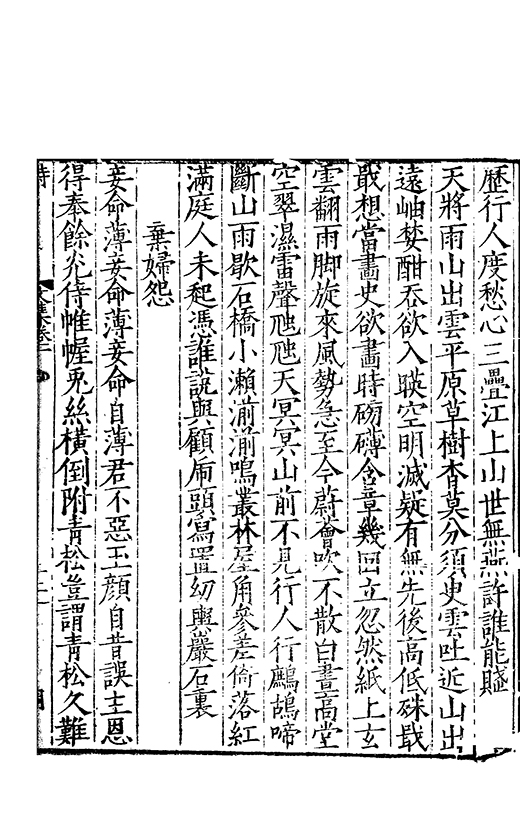 歷行人度愁心三疊江上山世無燕許誰能賤
天將雨山出雲平原草樹杳莫分須臾雲吐近山出
遠岫婪酣吞欲入暎空明滅疑有無先後高低殊戢
戢想當畫史欲畫時磅礴含章幾回立忽然紙上玄
雲翻雨脚旋來風勢急至今蔚薈吹不散白晝高堂
空翠濕雷聲虺虺天冥冥山前不見行人行鷓鴣啼
斷山雨歇石橋小瀨湔湔鳴叢林屋角參差倚落紅
滿庭人未起憑誰說與顧虎頭寫置幼輿巖石裏
棄婦怨
妾命薄妾命薄妾命自薄君不惡玉顔自昔誤主恩
得奉餘光侍帷幄兎絲橫倒附青松豈謂青松久難